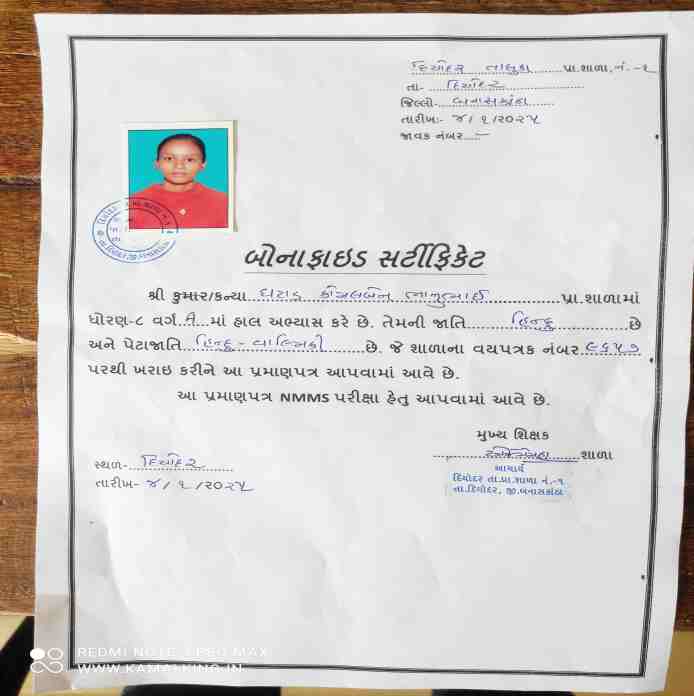 દિયોદર તાલુકા પ્રા.શાળા, નં.-૧
તા- દિયોદર
જિલ્લો- બનાસકાંઠા
તારીખ:- ૪/૧/૨૦૨૫
જાવક નંબર.....-
બોનાફાઇડ સર્ટીફિકેટ
શ્રી કુમાર/કન્યા ભાનુભાઈ પ્રા.શાળામાં
ધોરણ-૮ વર્ગ A માં હાલ અભ્યાસ કરે છે. તેમની જાતિ હિન્દુ છે
અને પેટાજાતિ હિન્દુ - વાલ્મિકી છે. જે શાળાના વયપત્રક નંબર ૯૬૫૭
પરથી ખરાઇ કરીને આ પ્રમાણપત્ર આપવામાં આવે છે.
આ પ્રમાણપત્ર NMMS પરીક્ષા હેતુ આપવામાં આવે છે.
મુખ્ય શિક્ષક
શાળા
આચાર્ય
દિયોદર તા.પ્રા.શાળા નં.-૧
તા.દિયોદર, જી.બનાસકાંઠા
સ્થળ- દિયોદર
તારીખ- ૪/૧/૨૦૨૫
REDMI NOTE 9 PRO MAX
WWW.KAMALKING.IN